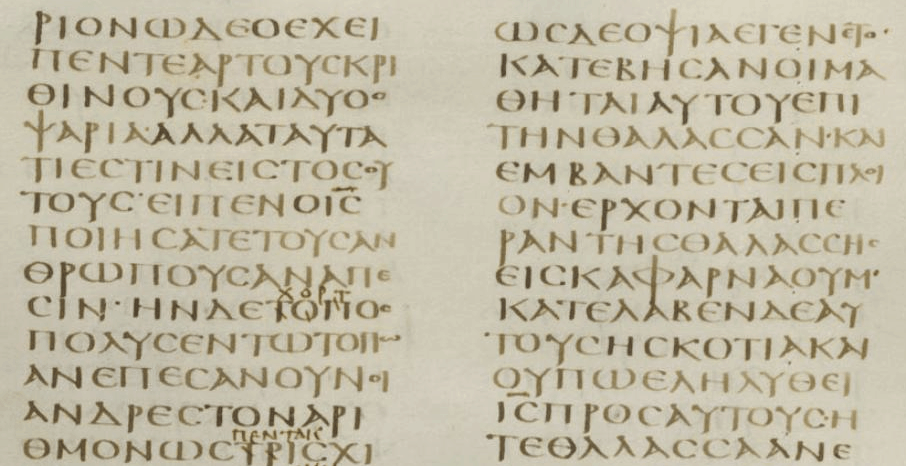 ΡΙΟΝΩΔΕΟΕΧΕΙ
ΠΕΝΤΕΑΡΤΟΥϹΚΡΙ
ΘΙΝΟΥϹ·ΚΑΙΔΥΟΟ
ΨΑΡΙΑ·ΑΛΛΑΤΑΥΤΑ
ΤΙΕϹΤΙΝΕΙϹΤΟϹΟΥ
ΤΟΥϹ·ΕΙΠΕΝΟΙ̅Ϲ̅
ΠΟΙΗϹΑΤΕΤΟΥϹΑΝ
ΘΡΩΠΟΥϹΑΝΑΠΕ
ΧΟΡΤ
ϹΙΝ·ΗΝΔΕΤΟΠΟϹ
ΠΟΛΥϹΕΝΤΩΤΟΠΩ
ΑΝΕΠΕϹΑΝΟΥΝΟΙ
ΑΝΔΡΕϹΤΟΝΑΡΙ
ΠΕΝΤΑΚΙϹ
ΘΜΟΝΩϹΤΡΙϹΧΙ
ΩϹΔΕΟΨΙΑΕΓΕΝΕΤΟ·
ΚΑΤΕΒΗϹΑΝΟΙΜΑ
ΘΗΤΑΙΑΥΤΟΥΕΠΙ
ΤΗΝΘΑΛΑϹϹΑΝ·ΚΑΙ
ΕΜΒΑΝΤΕϹΕΙϹΠΛΟΙ
ΟΝ·ΕΡΧΟΝΤΑΙΠΕ
ΡΑΝΤΗϹΘΑΛΑϹϹΗϹ
ΕΙϹΚΑΦΑΡΝΑΟΥΜ·
ΚΑΤΕΛΑΒΕΝΔΕΑΥ
ΤΟΥϹΗϹΚΟΤΙΑΚΑΙ
ΟΥΠΩΕΛΗΛΥΘΕΙ
Ι̅Ϲ̅ΠΡΟϹΑΥΤΟΥϹ·Η
ΤΕΘΑΛΑϹϹΑΑΝΕ